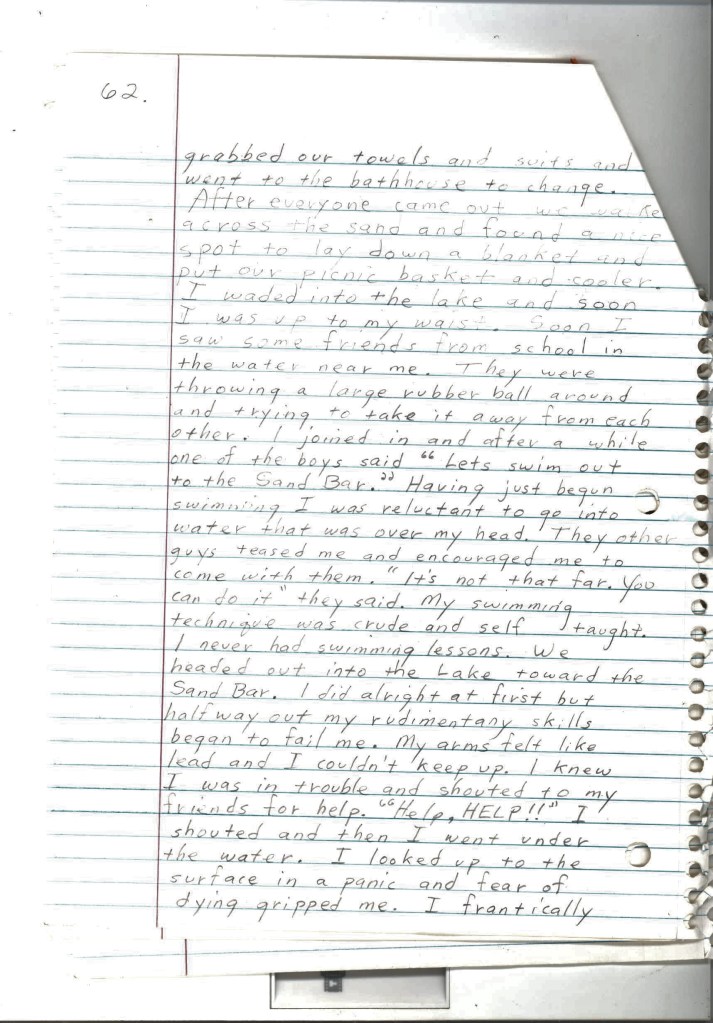 62.
grabbed our towels and suits and
went to the bathhouse to change.
After everyone came out we walke
across the sand and found a nice
spot to lay down a blanket and
put our picnic basket and cooler.
I waded into the lake and soon
I was up to my waist. Soon I
saw some friends from school in
the water near me. They were
throwing a large rubber ball around
and trying to take it away from each
other. I joined in and after a while
one of the boys said "Lets swim out
to the Sand Bar." Having just begun
swimming I was reluctant to go into
water that was over my head. They other
guys teased me and encouraged me to
come with them. "It's not that far. You
can do it" they said. My swimming
technique was crude and self taught.
I never had swimming lessons. We
headed out into the Lake toward the
Sand Bar. I did alright at first but
half way out my rudimentary skills
began to fail me. My arms felt like
lead and I couldn't keep up. I knew
I was in trouble and shouted to my
friends for help. "Help, HELP!!" I
shouted and then I went under
the water. I looked up to the
surface in a panic and fear of
dying gripped me. I frantically